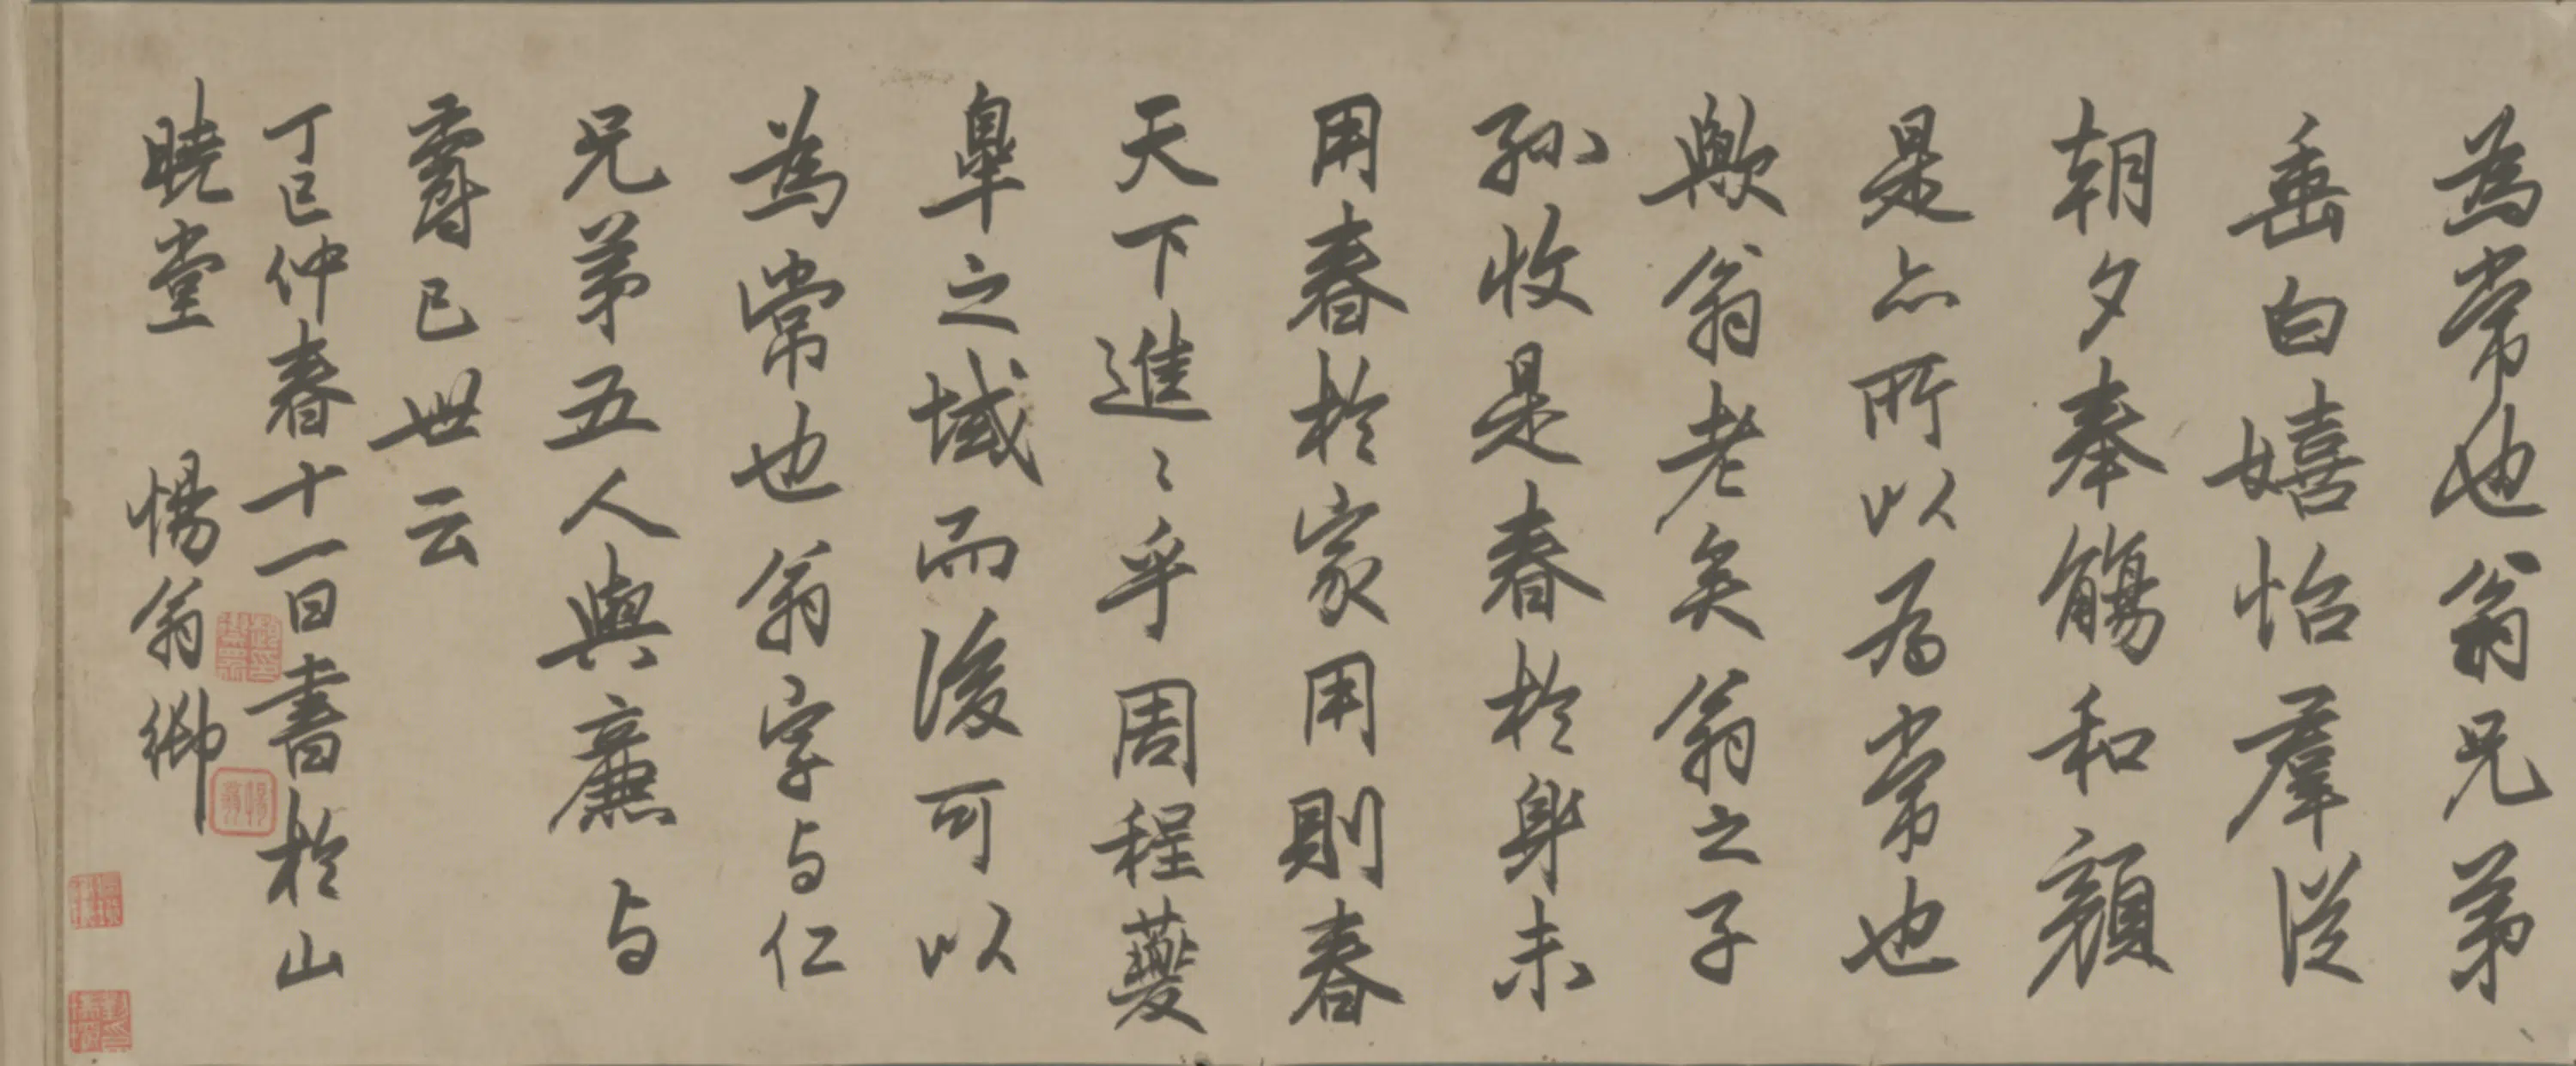 為常也翁兄弟
垂白嬉怡羣從
朝夕奉觴和顔
是亦所以為常也
歟翁老矣翁之子
孫收是春於身未
用春於家用則春
天下進〻乎周程夔
皐之域而後可以
為常也翁字与仁
兄弟五人與廉与
爵已世云
丁巳仲春十一日書於山
曉堂 惕翁